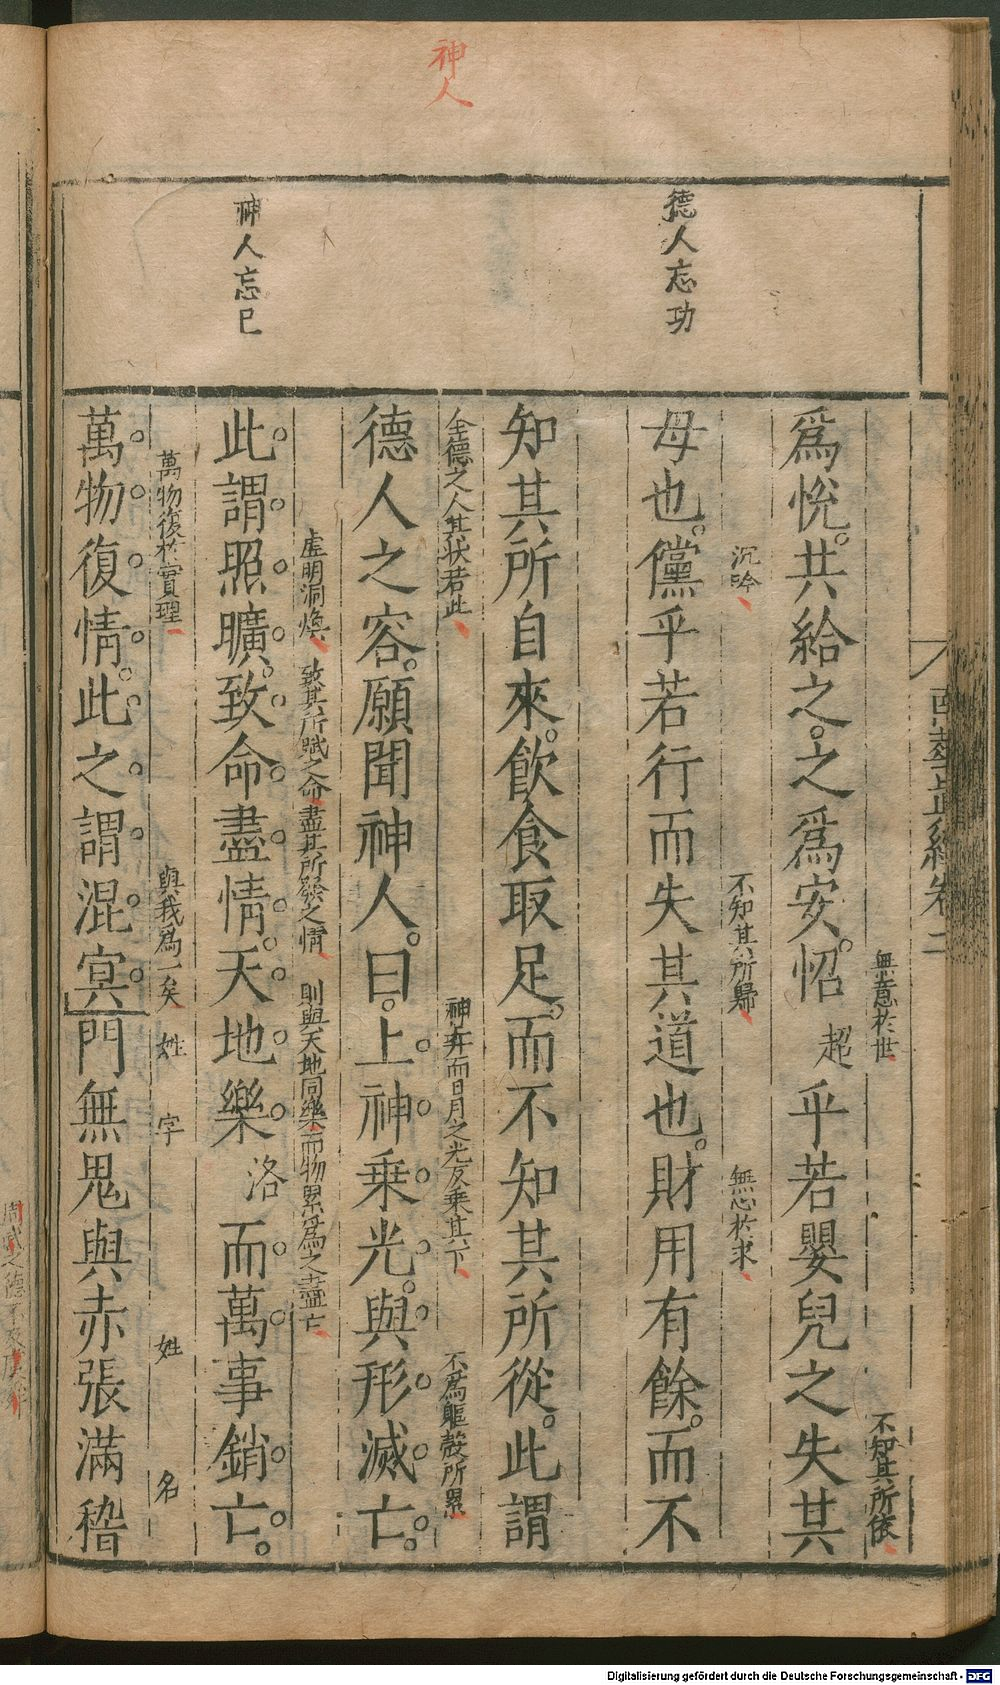 神人
德人忘功
神人忘已
南華真經卷二
無意於世 不知其所依
爲悅共給之之爲安怊 超 乎若嬰兒之失其
沉吟 不知其所歸 無心於求
母也儻乎若行而失其道也財用有餘而不
知其所自來飲食取足而不知其所從此謂
全德之人其狀若此 神上升而日月之光反乘其下 不爲軀殼所累
德人之容願聞神人曰上神乘光與形滅亡
虛明洞煥 致其所賦之命盡其所發之情 則與天地同樂而物累爲之盡亡
此謂照曠致命盡情天地樂 洛 而萬事銷亡
萬物復於實理 與我爲一矣 姓 字 姓 名
萬物復情此之謂混冥門無鬼與赤張滿稽
Digitalisierung gefördert durch die Deutsche Forschungsgemeinschaft - DFG